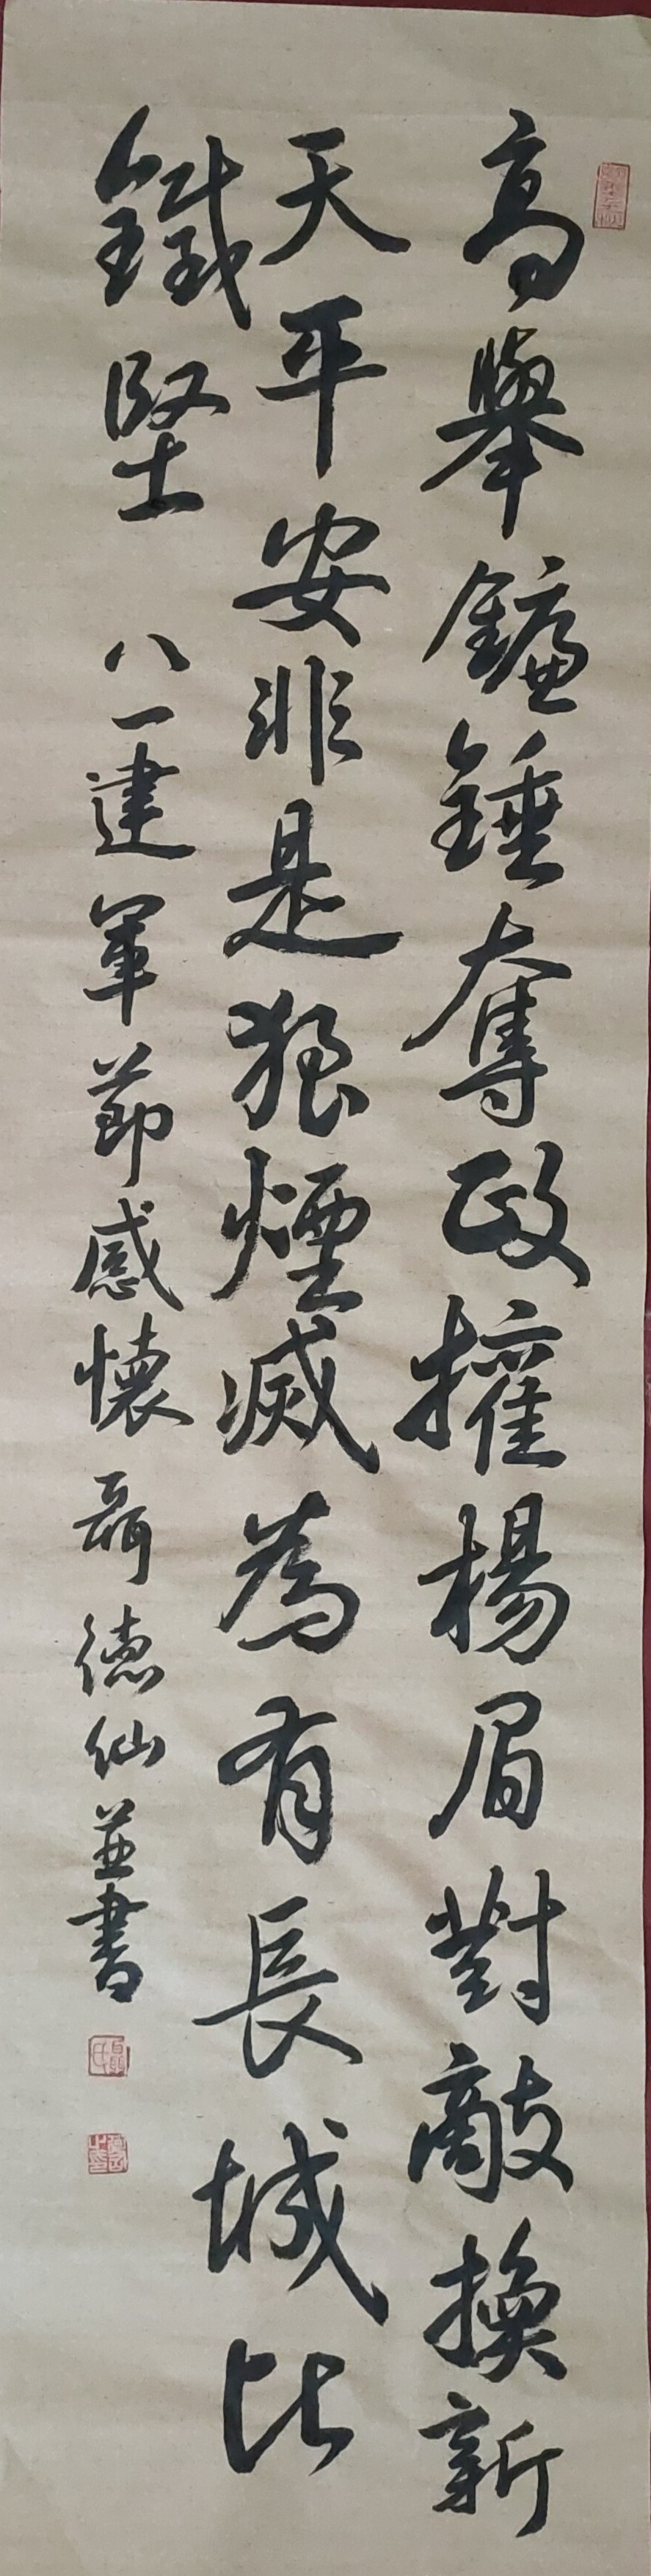 高舉鐮錘奪政權楊眉對敵換新
天平安非是狼煙滅為有長城比
鐵堅
八一建軍節感懷聶德仙並書